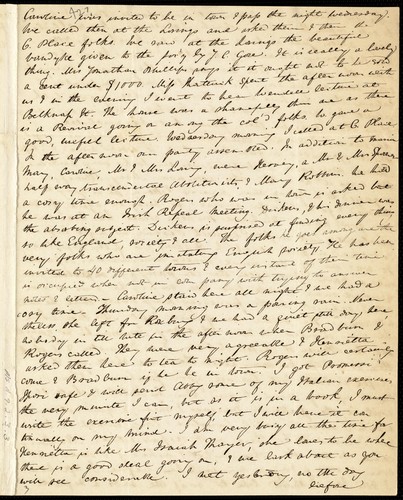 Caroline was invited to be in town & pass the night wednesday.
We called then at the Lorings and asked them & then the
C. Place folks. We saw at the Lorings the beautiful
bandyke given to the fair by J. C. Gore. It is really a lovely
thing. Mrs Jonathan Phillips says it ought not to be sold
a cent under $1000. Miss Kattuck spent the afternoon with
us & in the evening I went to hear Wendell lecture at
Belknap St. The house was shamefully thin as there
is a Revival going on among the col'd folks. he gave a
good, useful lecture. Wednesday morning I called at C. Place
In the afternoon our party assembled. In addition to
Mary, Caroline, Mr & Mrs Loring, were Hervey, a Mr & Mrs
half way transcendental Abolitionists & Mary Robbins. We had
a cosy time enough. Rogers who was in town is asked but
he was at an Irish Repeal Meeting. Dickens, & his dinner was
the absorbing subject. Dickens is surprised at finding every thing
so like England, society & all. The folks he goes among are the
very folks who are imitating English society. He has been
invited to 40 different towns & every instant of their time
is occupied when not in company with trying to answer
notes & letters. Caroline staid here all night & we had a
cosy time. Thursday morning was a pouring rain. Never
theless she left for Roxbury & we had a quiet still day here,
nobody in till late in the afternoon when Bradburn &
Rogers called. They were very agreeable & Henrietta
asked them here to tea to night. Rogers will certainly
come & Bradburn if he be in town. I got Pomeroi
Fiori safe & will send Abby some of my Italian exercises,
the very minute I can, but as it is in a book, I must
write the exercise first myself, but I will have it con
tinually on my mind. I am very busy all the time for
Henrietta is like Mrs Isaiah Thayer, she loves to be where
there is a good deal going on, & we lark about as you
will see considerable. I met yesterday, no the day
before